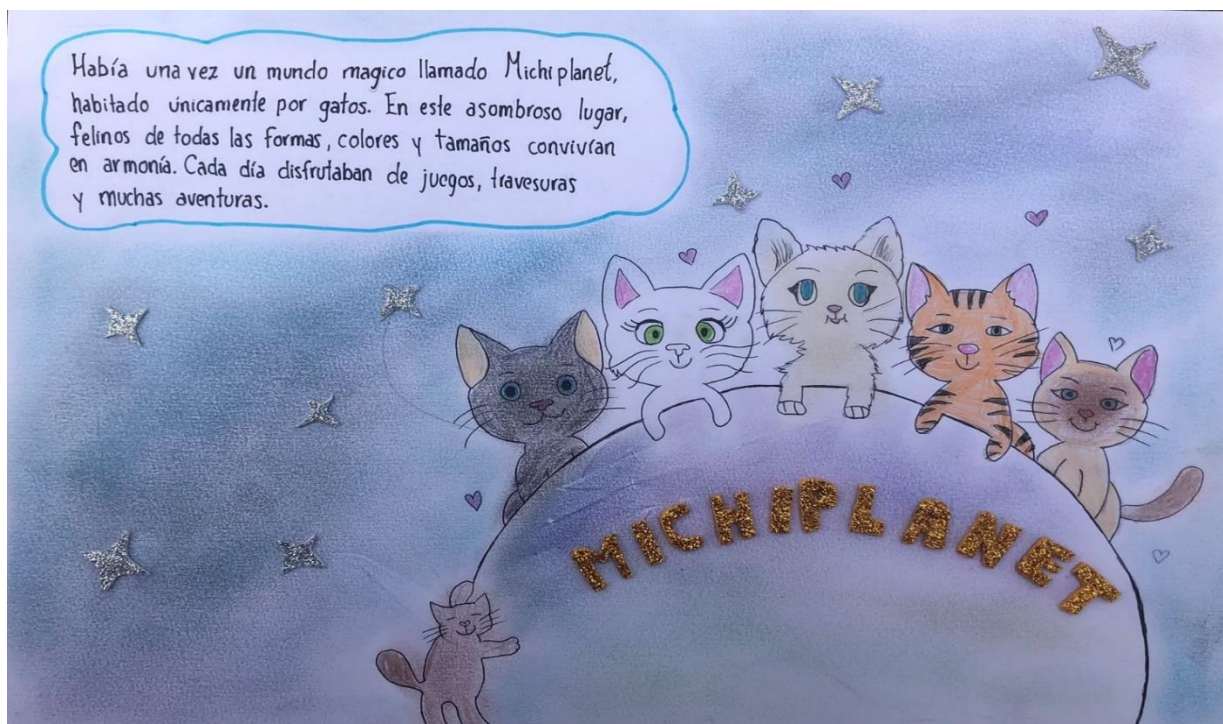 Había una vez un mundo magico llamado Michiplanet,
habitado únicamente por gatos. En este asombroso lugar,
felinos de todas las formas, colores y tamaños convivían
en armonía. Cada día disfrutaban de juegos, travesuras
y muchas aventuras.
MICHIPLANET